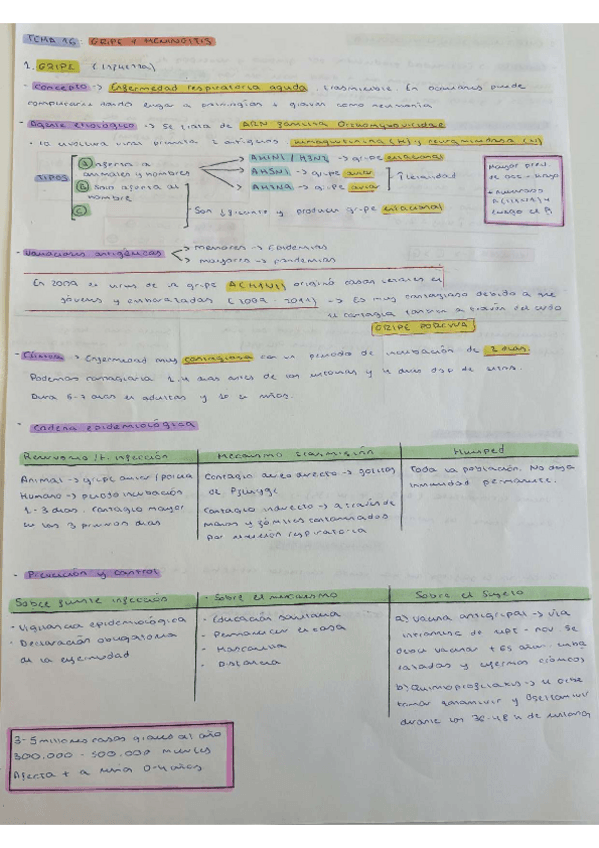 TEMA 16: GRIPE Y MENINGITIS
1. GRIPE (Influenza)
- Concepto -> Enfermedad respiratoria aguda trasmisible. En ocasiones puede
complicarse dando lugar a patologías + graves como neumonía
- Agente etiológico -> Se trata de ARN familia Orthomyxoviridae
hemaglutinina (H) y neuraminidasa (N)
TIPOS
A animales y hombres
AH1N1 / H3N2 -> gripe estacional
AH5N1 -> gripe aviar
AH7N9 -> gripe aviar
↑ letalidad
B Solo afecta al
hombre
C
Son y producen gripe estacional
- Variaciones antigénicas
menores -> Epidemias
mayores -> pandemias
En 2009 el virus de la gripe A(H1N1) originó casos en
jóvenes y embarazadas (2009 - 2011) -> Es muy contagioso debido a que
se contagia a través del cerdo
GRIPE PORCINA
- Clínica -> Enfermedad muy contagiosa con un periodo de incubación de 2 días.
Podemos contagiarla días antes de los síntomas y
Dura 5-7 días en adultos y 10 en niños.
- Cadena epidemiológica
Reservorio / f. infección
Mecanismo trasmisión
Huésped
Animal -> gripe aviar / porcina
Humano -> periodo incubación
1-3 días. Contagio mayor
en los 3 primeros días
Contagio directo -> gotitas
de Pflügge
Contagio indirecto -> a través de
manos y fómites contaminados
por secreción respiratoria
Toda la población. No deja
inmunidad permanente.
- Prevención y control
Sobre fuente infección
- Sobre el mecanismo
Sobre el sujeto
- Vigilancia epidemiológica
- Declaración obligatoria
de la enfermedad
- Educación sanitaria
- Permanecer en casa
- Mascarilla
- Distancia
a) Vacuna antigripal -> vía
intramusc de sept - nov. Se
debe vacunar + 65 años
y enfermos crónicos
b) Quimioprofilaxis -> se debe
tomar zanamivir y Oseltamivir
durante las 36-48 h de
3-5 millones casos graves al año
300.000 - 500.000 muertes
Afecta + a niños 0-4 años